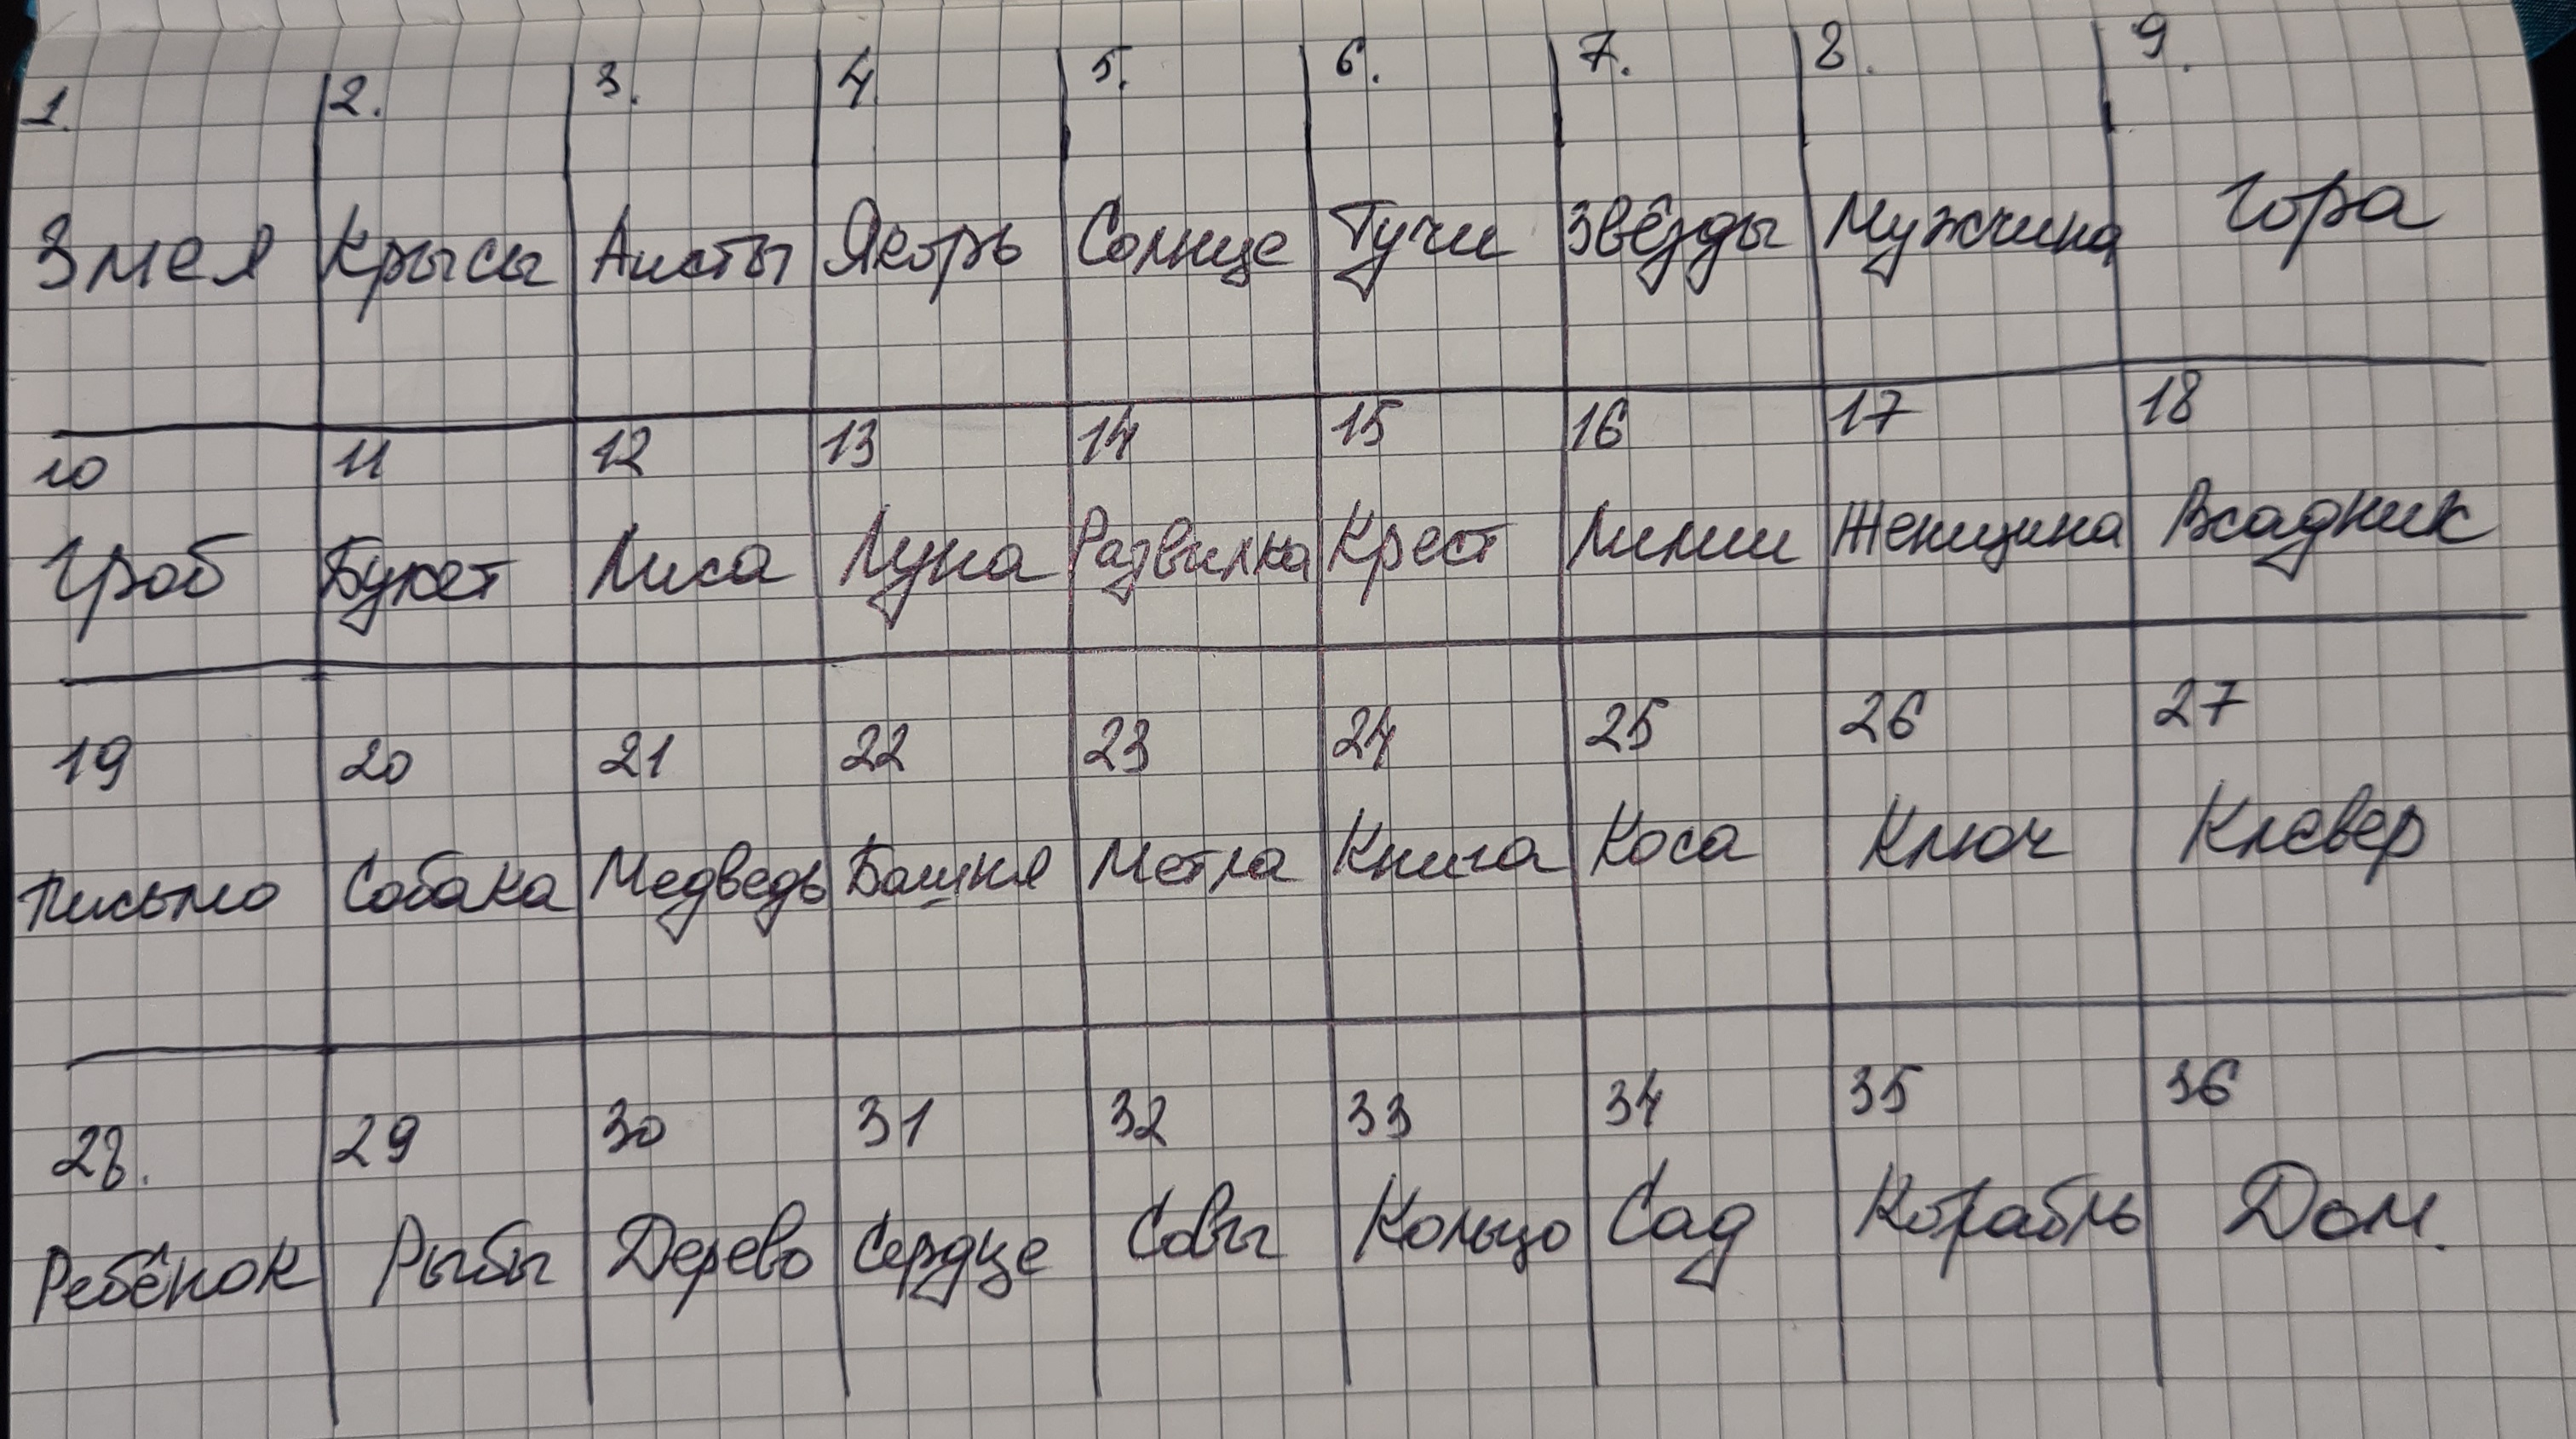 1. 2. 3. 4. 5. 6. 7. 8. 9.
Змея Крысы Аисты Якорь Солнце Тучи Звёзды Мужчина Гора
10 11 12 13 14 15 16 17 18
Гроб Букет Лиса Луна Развилка Крест Лилии Женщина Всадник
19 20 21 22 23 24 25 26 27
Письмо Собака Медведь Башня Метла Книга Коса Ключ Клевер
28. 29 30 31 32 33 34 35 36
Ребёнок Рыбы Дерево Сердце Совы Кольцо Сад Корабль Дом.